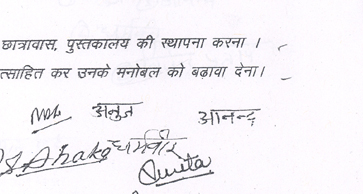 छात्रावास, पुस्तकालय की स्थापना करना ।
त्साहित कर उनके मनोबल को बढावा देना।
अनुज आनन्द
धर्मवीर
Sunita